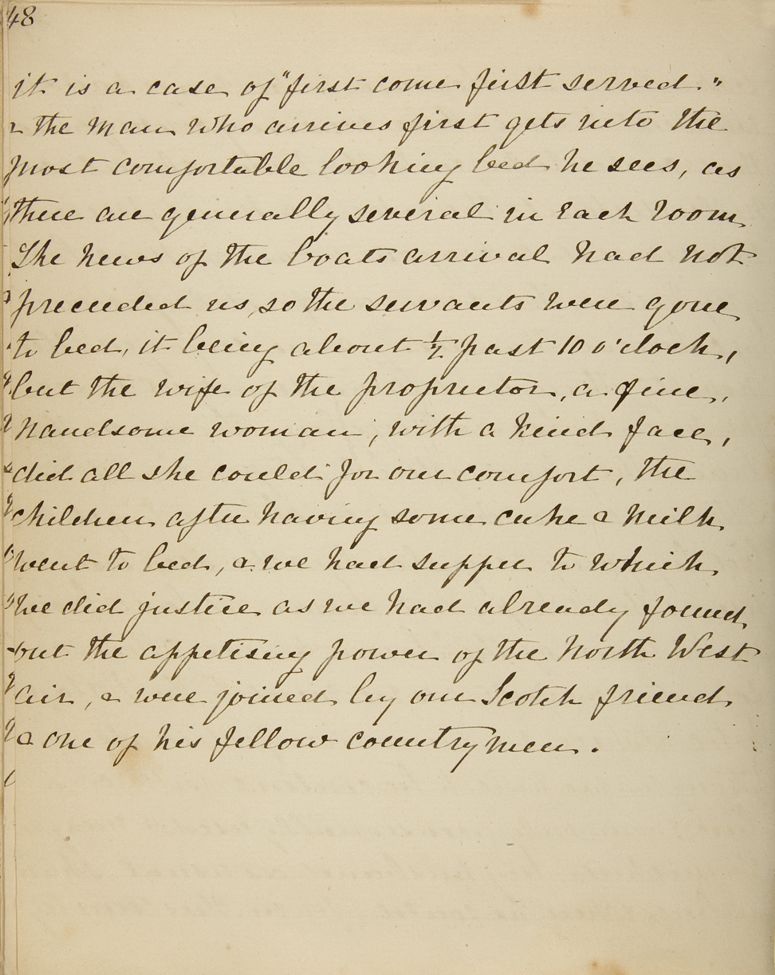 48
it is a case of "first come first served."
& the man who arrives first gets into the
most comfortable looking bed he sees, as
there are generally several in each room
The news of the boats arrival had not
preceeded us, so the servants were gone
to bed, it being about ½ past 10 o'clock,
but the wife of the proprietor, a fine,
handsome woman, with a kind face,
did all she could for our comfort, the
children after having some cake & milk
went to bed, & we had supper to which
we did justice as we had already found
out the appetising power of the North West
air, & were joined by our Scotch friend
& one of his fellow countrymen.